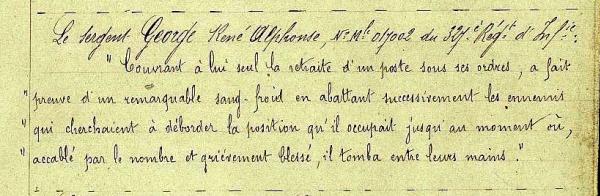 Le sergent George René Alphonse, No Mle 017002 du 321e Régt d'Infie:
"Couvrant à lui seul la retraite d'un poste sous ses ordres, a fait
" preuve d'un remarquable sang-froid en abattant successivement les ennemis
" qui cherchaient à déborder la position qu'il occupait jusqu'au moment où,
" accablé par le nombre et grièvement blessé, il tomba entre leurs mains."